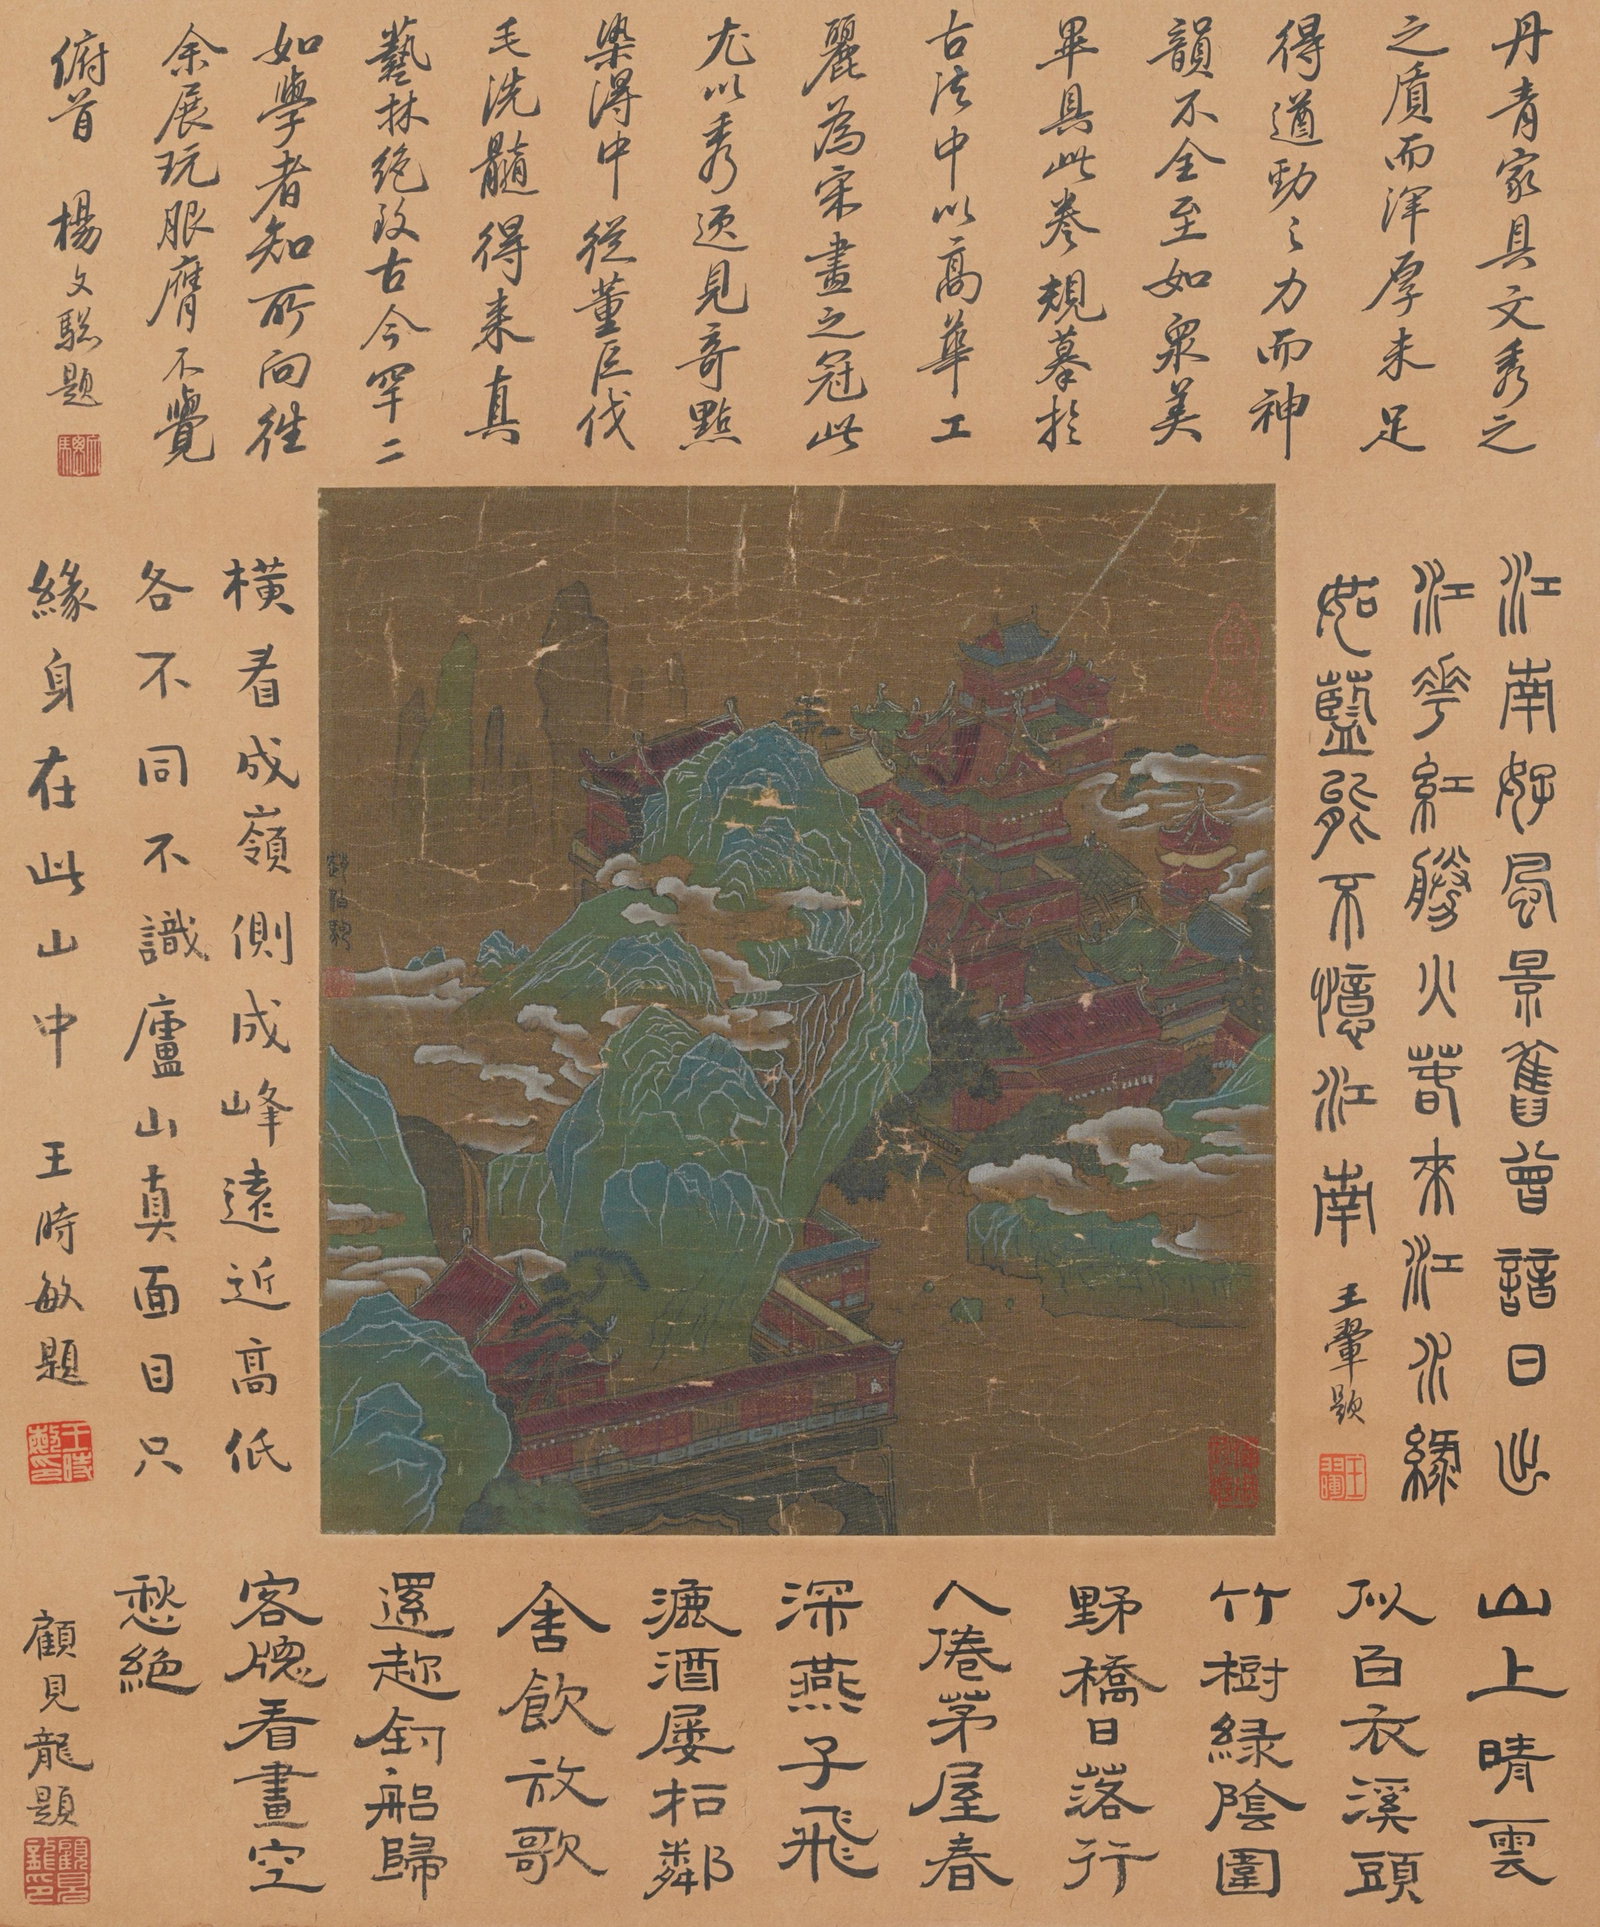 丹青家具文秀之
之質而渾厚未足
得遒勁之力而神
韻不全至如衆美
畢具此卷規摹於
古法中以高華工
麗為宋畫之冠此
尤以秀逸見奇點
染得中從董巨伐
毛洗髓得來真
藝林絕玫古今罕二
如學者知所向往
余展玩服膺不覺
俯首 楊文驄題
江南好風景舊曾諳日出
江花紅勝火春來江水綠
如藍能不憶江南
王翬題
王翬
趙伯駒
橫看成嶺側成峰遠近高低
各不同不識廬山真面目只
緣身在此山中 王時敏題
王時敏印
山上晴雲
似白衣溪頭
竹樹綠陰圍
野橋日落行
人倦茅屋春
深燕子飛
漉酒屡招鄰
舍飲放歌
還趂釣船歸
客窗看畫空
愁絕
顧見龍題
顧見龍印